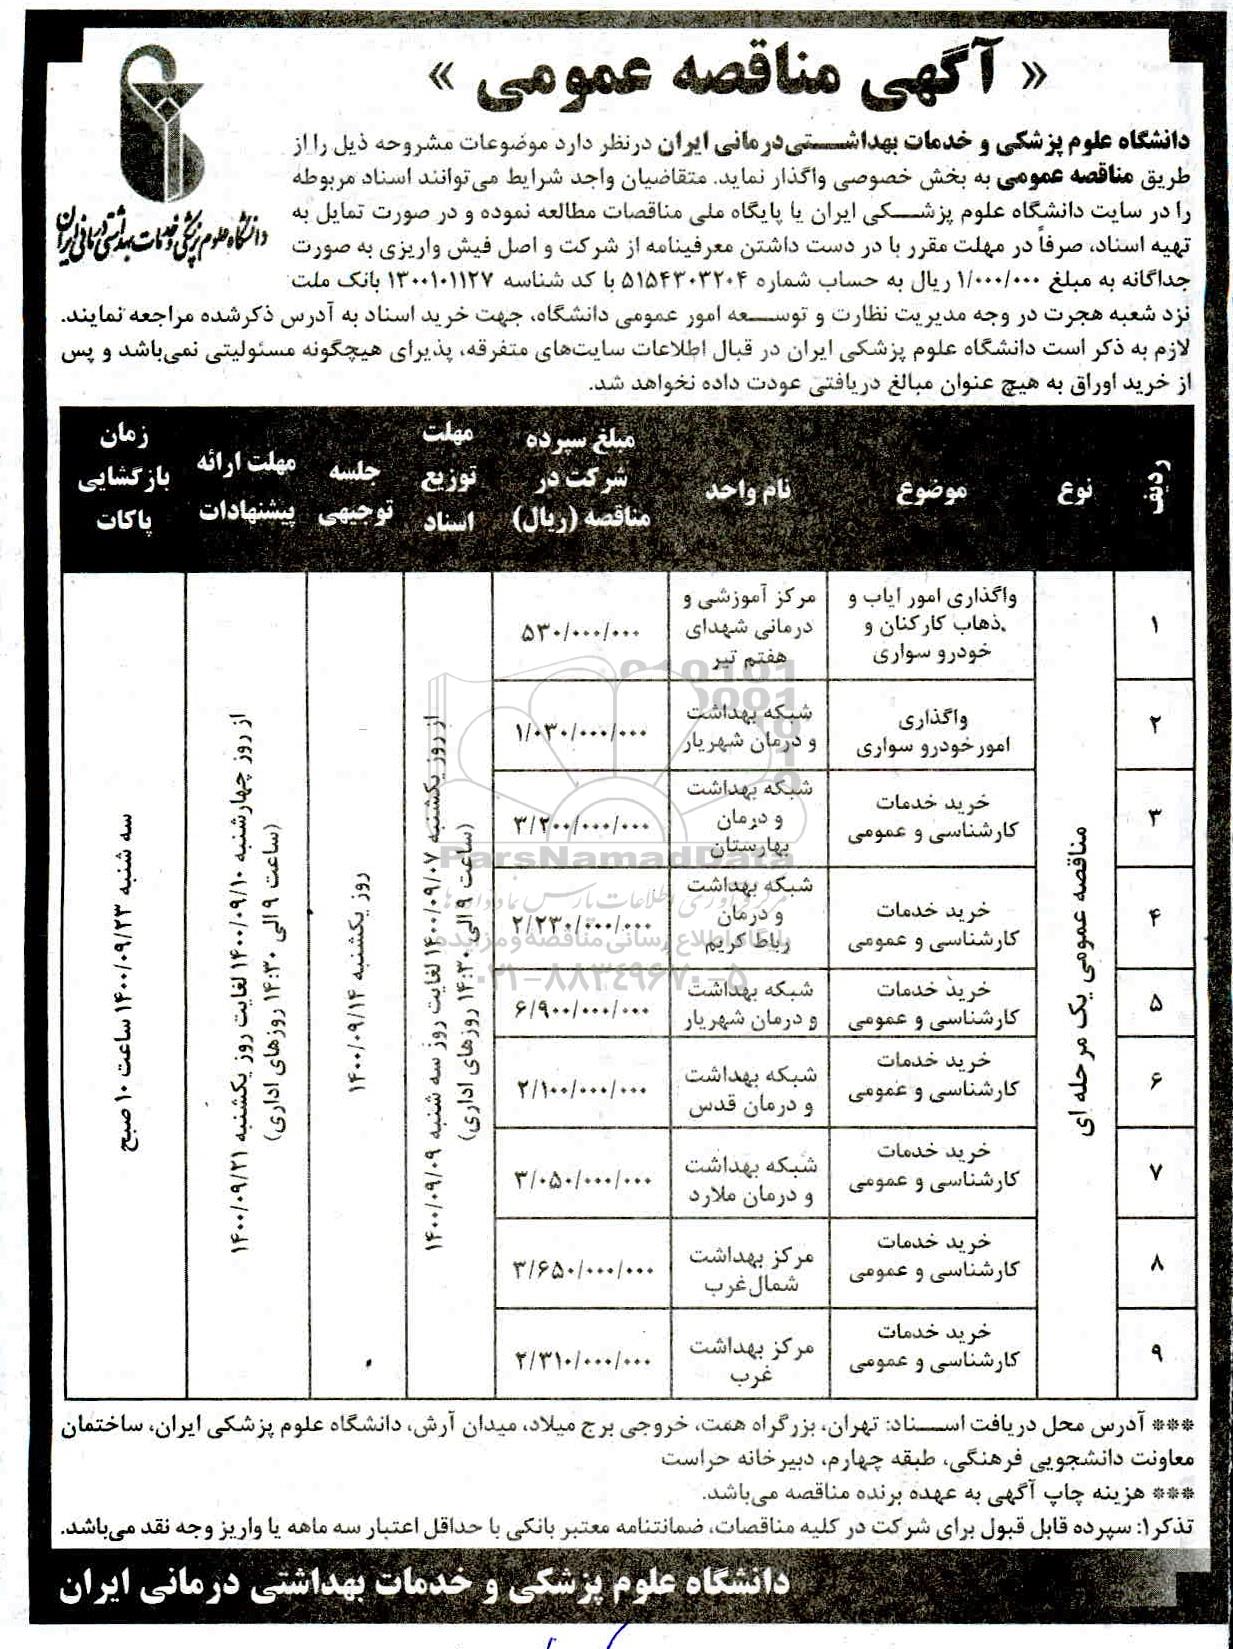 « آگهی مناقصه عمومی »
دانشگاه علوم پزشکی و خدمات بهداشتی درمانی ایران
دانشگاه علوم پزشکی و خدمات بهداشتی‌درمانی ایران درنظر دارد موضوعات مشروحه ذیل را از
طریق مناقصه عمومی به بخش خصوصی واگذار نماید. متقاضیان واجد شرایط می‌توانند اسناد مربوطه
را در سایت دانشگاه علوم پزشکی ایران یا پایگاه ملی مناقصات مطالعه نموده و در صورت تمایل به
تهیه اسناد، صرفاً در مهلت مقرر با در دست داشتن معرفینامه از شرکت و اصل فیش واریزی به صورت
جداگانه به مبلغ ۱/۰۰۰/۰۰۰ ریال به حساب شماره ۵۱۵۴۳۰۳۲۰۴ با کد شناسه ۱۳۰۰۱۰۱۱۲۷ بانک ملت
نزد شعبه هجرت در وجه مدیریت نظارت و توسعه امور عمومی دانشگاه، جهت خرید اسناد به آدرس ذکرشده مراجعه نمایند.
لازم به ذکر است دانشگاه علوم پزشکی ایران در قبال اطلاعات سایت‌های متفرقه، پذیرای هیچگونه مسئولیتی نمی‌باشد و پس
از خرید اوراق به هیچ عنوان مبالغ دریافتی عودت داده نخواهد شد.
ردیف
نوع
موضوع
نام واحد
مبلغ سپرده
شرکت در
مناقصه (ریال)
مهلت
توزیع
اسناد
جلسه
توجیهی
مهلت ارائه
پیشنهادات
زمان
بازگشایی
پاکات
۱
واگذاری امور ایاب و
ذهاب کارکنان و
خودرو سواری
مرکز آموزشی و
درمانی شهدای
هفتم تیر
۵۳۰/۰۰۰/۰۰۰
۲
واگذاری
امورخودرو سواری
شبکه بهداشت
و درمان شهریار
۱/۰۳۰/۰۰۰/۰۰۰
۳
خرید خدمات
کارشناسی و عمومی
شبکه بهداشت
و درمان
بهارستان
۳/۲۰۰/۰۰۰/۰۰۰
۴
خرید خدمات
کارشناسی و عمومی
شبکه بهداشت
و درمان
رباط کریم
۲/۲۳۰/۰۰۰/۰۰۰
۵
خرید خدمات
کارشناسی و عمومی
شبکه بهداشت
و درمان شهریار
۶/۹۰۰/۰۰۰/۰۰۰
۶
خرید خدمات
کارشناسی و عمومی
شبکه بهداشت
و درمان قدس
۲/۱۰۰/۰۰۰/۰۰۰
۷
خرید خدمات
کارشناسی و عمومی
شبکه بهداشت
و درمان ملارد
۳/۰۵۰/۰۰۰/۰۰۰
۸
خرید خدمات
کارشناسی و عمومی
مرکز بهداشت
شمال‌غرب
۳/۶۵۰/۰۰۰/۰۰۰
۹
خرید خدمات
کارشناسی و عمومی
مرکز بهداشت
غرب
۲/۳۱۰/۰۰۰/۰۰۰
مناقصه عمومی یک مرحله ای
از روز یکشنبه ۱۴۰۰/۰۹/۰۷ لغایت روز سه شنبه ۱۴۰۰/۰۹/۰۹
(ساعت ۹ الی ۱۴:۳۰ روزهای اداری)
روز یکشنبه ۱۴۰۰/۰۹/۱۴
از روز چهارشنبه ۱۴۰۰/۰۹/۱۰ لغایت روز یکشنبه ۱۴۰۰/۰۹/۲۱
(ساعت ۹ الی ۱۴:۳۰ روزهای اداری)
سه شنبه ۱۴۰۰/۰۹/۲۳ ساعت ۱۰ صبح
ParsNamadData
مرکز فرآوری اطلاعات پارس نماد داده ها
پایگاه اطلاع رسانی مناقصه و مزایده
۰۲۱-۸۸۳۴۹۶۷۰-۵
*** آدرس محل دریافت اسناد: تهران، بزرگراه همت، خروجی برج میلاد، میدان آرش، دانشگاه علوم پزشکی ایران، ساختمان
معاونت دانشجویی فرهنگی، طبقه چهارم، دبیرخانه حراست
*** هزینه چاپ آگهی به عهده برنده مناقصه می‌باشد.
تذکر۱: سپرده قابل قبول برای شرکت در کلیه مناقصات، ضمانتنامه معتبر بانکی با حداقل اعتبار سه ماهه یا واریز وجه نقد می‌باشد.
دانشگاه علوم پزشکی و خدمات بهداشتی درمانی ایران